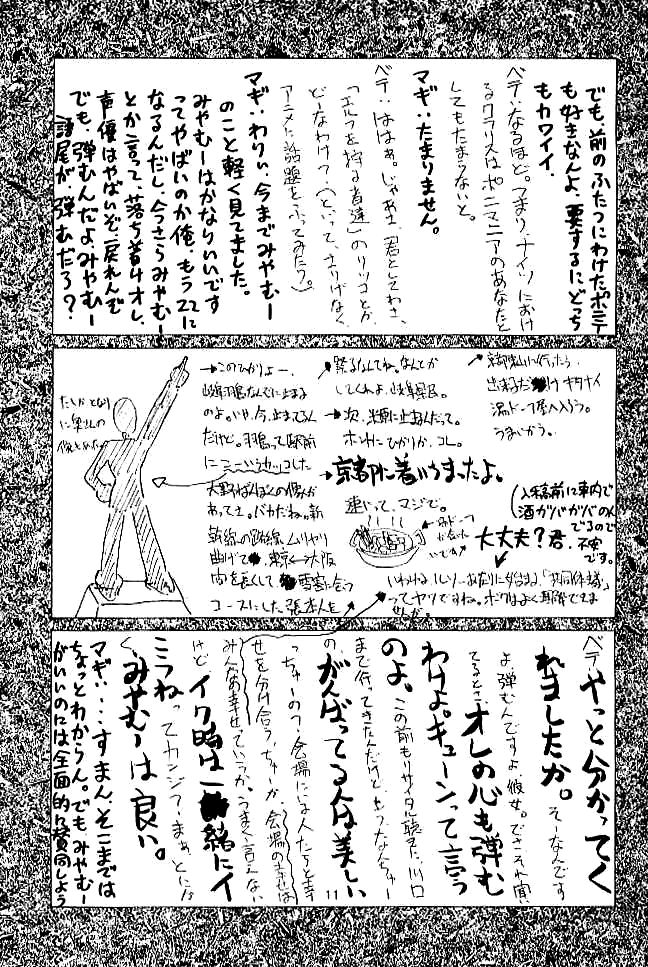 でも、前のふたつにわけたポニテ
も好きなんよ、要するにどっち
もカワイイ。
ベテ：なるほど。つまり、ナイツにおけ
るクラリスはポニマニアのあなたと
してもたまらないと。
マギ：たまりません。
ベテ：ははぁ。じゃあさ、君としてわさ、
「エルフを狩る者達」のリツコとか、
どーなわけ？（といって、さりげなく
アニメに話題をふってみたり。）
マギ：わりぃ、今までみやむー
のこと軽く見てました。
みやむーはかなりいいです
ってやばいのか俺、もう22に
なるんだし、今さらみやむー
とか言って、落ち着けオレ、
声優はやばいぞ、戻れんぞ
でも、弾むんだよみやむー
語尾が弾むだろ？
京都に行ったら、
出来るだけキタナイ
湯ドーフ屋へ入ろう。
うまいから。
なんてね。なんとか
してくれよ、岐阜県民。
→次、米原に止まるんだって。
ホントにひかりか、コレ。
→京都に着いちまったよ。
速いって、マジで。
→このひかりよー、
岐阜羽島なんぞに止まる
のよ。いや、今、止まってるん
だけど。羽島って駅前
にこーいうカッコした
大野ばんぼくの像が
あってさ。バカだね。新
幹線の路線、ムリヤリ
曲げて、東京⇔大阪
間を長くして、雪害に会う
コースにした張本人を
たしかとなり
に奥さんの
像もあった
（入稿前に車内で
酒ガバガバのん
でるので
不安
です。
大丈夫？君、
いわゆる、ルソーあたりに始まる、「共同体」
ってヤツですね。ボクはよく理解できま
せんが。
ベテ：やっと分かってく
れましたか。そーなんです
よ、弾むんですよ、彼女。でさ、それ聞い
てるとさ、オレの心も弾む
わけよ。キューンって言う
のよ。この前もリサイタル聴きに、川口
まで行ってきたんだけど、もうなんちゅー
の、がんばってる人は美しい
っちゅーの？、会場にいる人たちと幸
せを分け合うっちゅーか、会場の幸せは
みんなの幸せっていうか、うまく言えない
けど、イク時は一緒にイ
こうねってカンジ？まぁ、とにか
く、みやむーは良い。
マギ：…すまん、そこまでは
ちょっとわからん。でも、みやむー
がいいのには全面的に賛同しよう